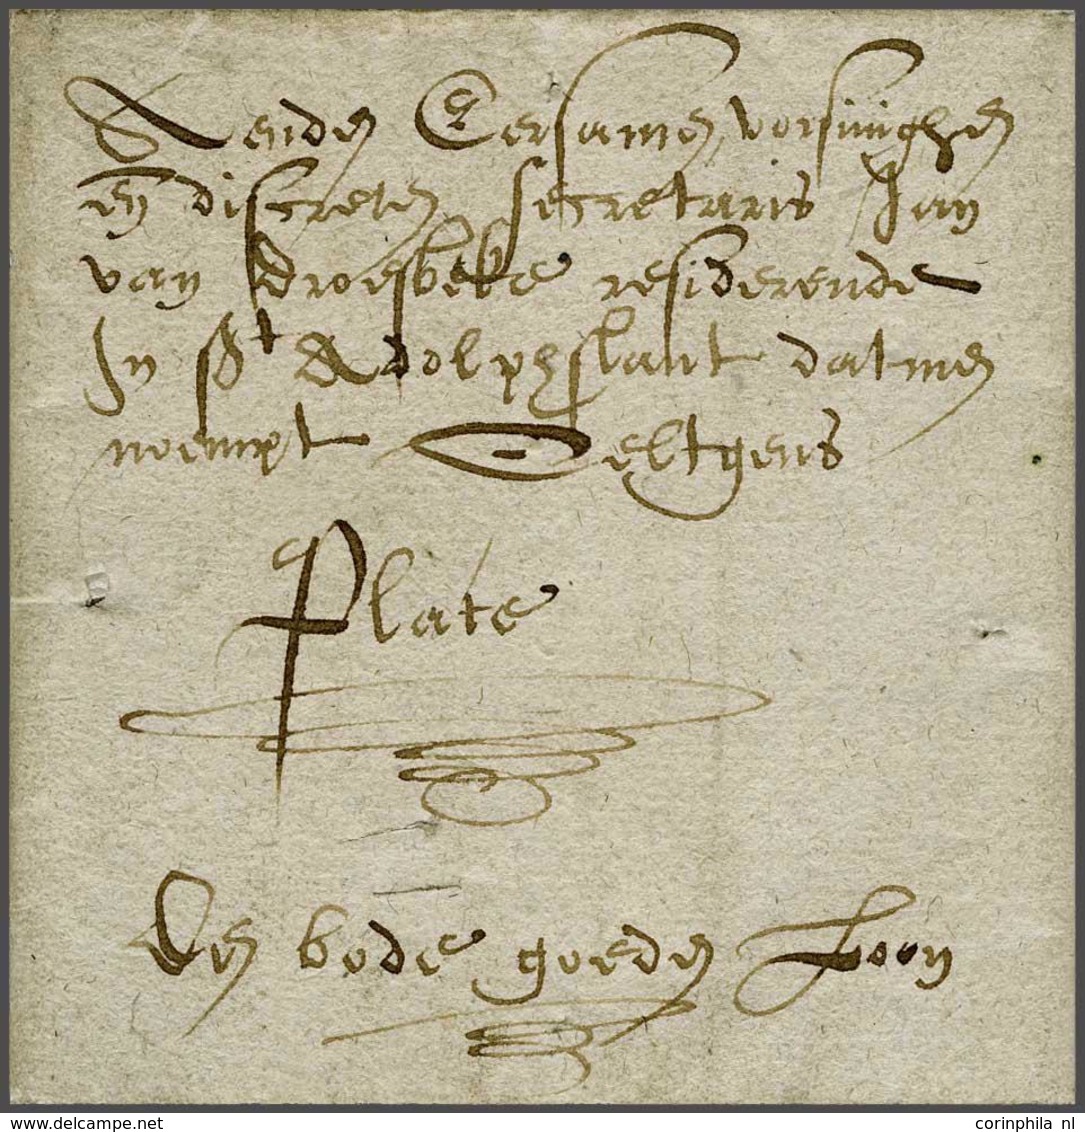 Aenden Eersamen vorsinighen
en discreten secretaris Jan
van droesbeke residerende
In st Adolphslant datmen
noempt Oeltgens
Plate
Den bode goeden loon
corinphila nl